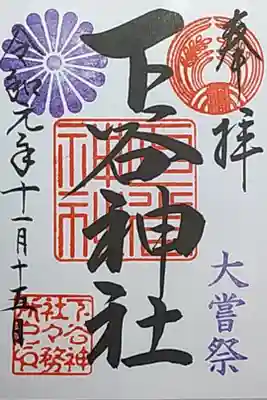 奉拝
大嘗祭
下谷神社
下谷神社
下谷神
社々務
所之印
令和元年十一月十五日